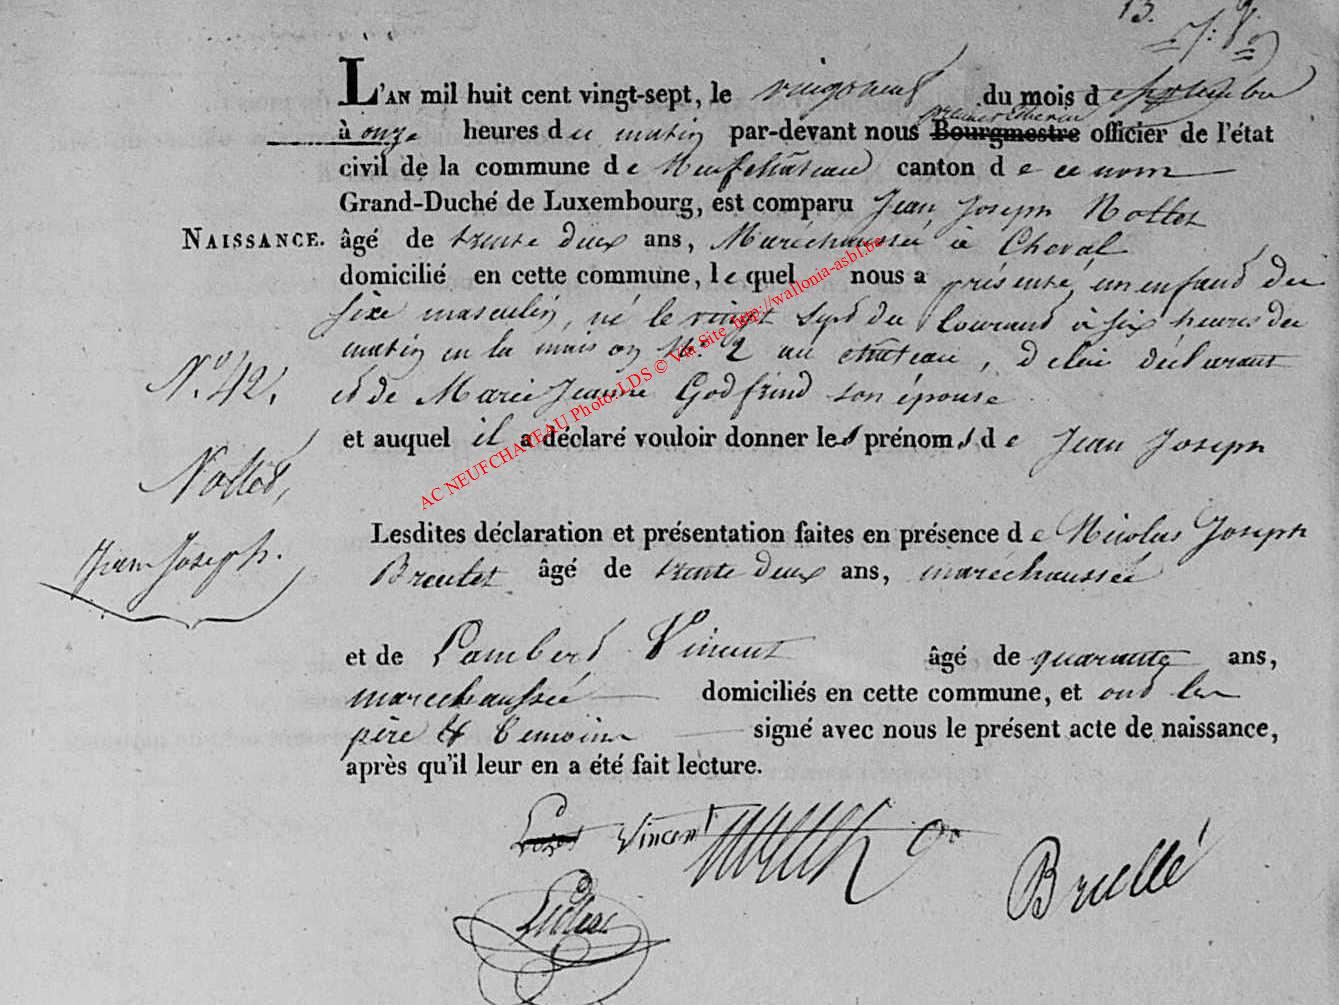 13.
L'AN mil huit cent vingt-sept, le vingt neuf du mois de Septembre
premier Echevin
à onze heures du matin par-devant nous Bourgmestre officier de l'état
civil de la commune de Neufchâteau canton de ce nom
Grand-Duché de Luxembourg, est comparu Jean Joseph Nollet
NAISSANCE. âgé de trente deux ans, Maréchaussée à Cheval
domicilié en cette commune, lequel nous a présenté un enfant du
sexe masculin, né le vingt sept du Courant à six heures du
matin en la maison N.° 2 au château, de lui déclarant
N.° 42. et de Marie Jeanne Godfrind son épouse
et auquel il a déclaré vouloir donner les prénoms de Jean Joseph
Nollet,
Jean Joseph.
Lesdites déclaration et présentation faites en présence de Nicolas Joseph
âgé de trente deux ans, maréchaussée
et de Lambert Vincent âgé de quarante ans,
marechaussée domiciliés en cette commune, et ont les
père & temoins signé avec nous le présent acte de naissance,
après qu'il leur en a été fait lecture.
Vincent
AC NEUFCHATEAU Photo LDS © Via Site http://wallonia-asbl.be